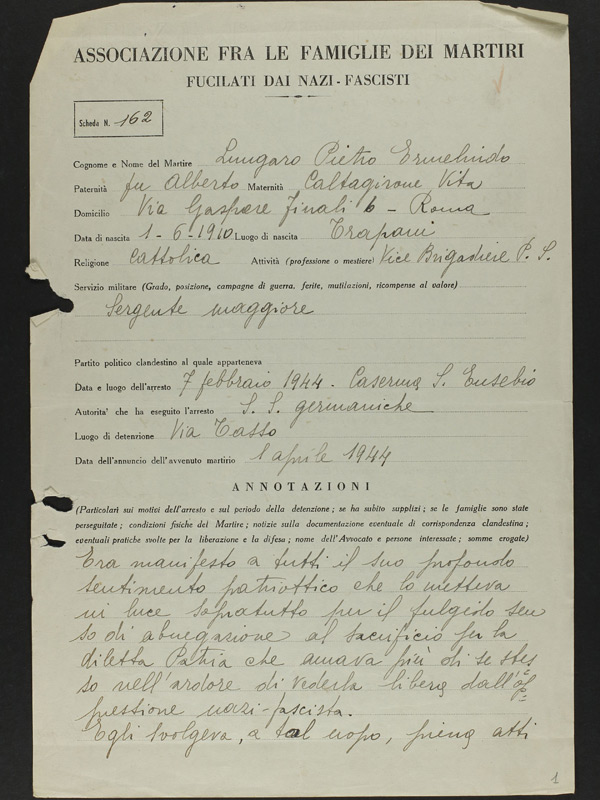 ASSOCIAZIONE FRA LE FAMIGLIE DEI MARTIRI
FUCILATI DAI NAZI-FASCISTI
Scheda N. 162
Cognome e Nome del Martire Lungaro Pietro Ermelindo
Paternità fu Alberto Maternità Caltagirone Vita
Domicilio Via Gaspare Finali 6 - Roma
Data di nascita 1-6-1910 Luogo di nascita Trapani
Religione Cattolica Attività (professione o mestiere) Vice Brigadiere P. S.
Servizio militare (Grado, posizione, campagne di guerra, ferite, mutilazioni, ricompense al valore)
Sergente maggiore
Partito politico clandestino al quale apparteneva
Data e luogo dell'arresto 7 febbraio 1944 - Caserma S. Eusebio
Autorita' che ha eseguito l'arresto S. S. germaniche
Luogo di detenzione Via Tasso
Data dell'annuncio dell'avvenuto martirio 1 aprile 1944
ANNOTAZIONI
(Particolari sui motivi dell'arresto e sul periodo della detenzione; se ha subìto supplizi; se le famiglie sono state
perseguitate; condizioni fisiche del Martire; notizie sulla documentazione eventuale di corrispondenza clandestina;
eventuali pratiche svolte per la liberazione e la difesa; nome dell'Avvocato e persone interessate; somme erogate)
Era manifesto a tutti il suo profondo
sentimento patriottico che lo metteva
in luce sopratutto per il fulgido sen
so di abnegazione al sacrificio per la
diletta Patria che amava più di se stes
so nell'ardore di vederla libera dall'op
pressione nazi-fascista.
Egli svolgeva, a tal uopo, piena atti
1